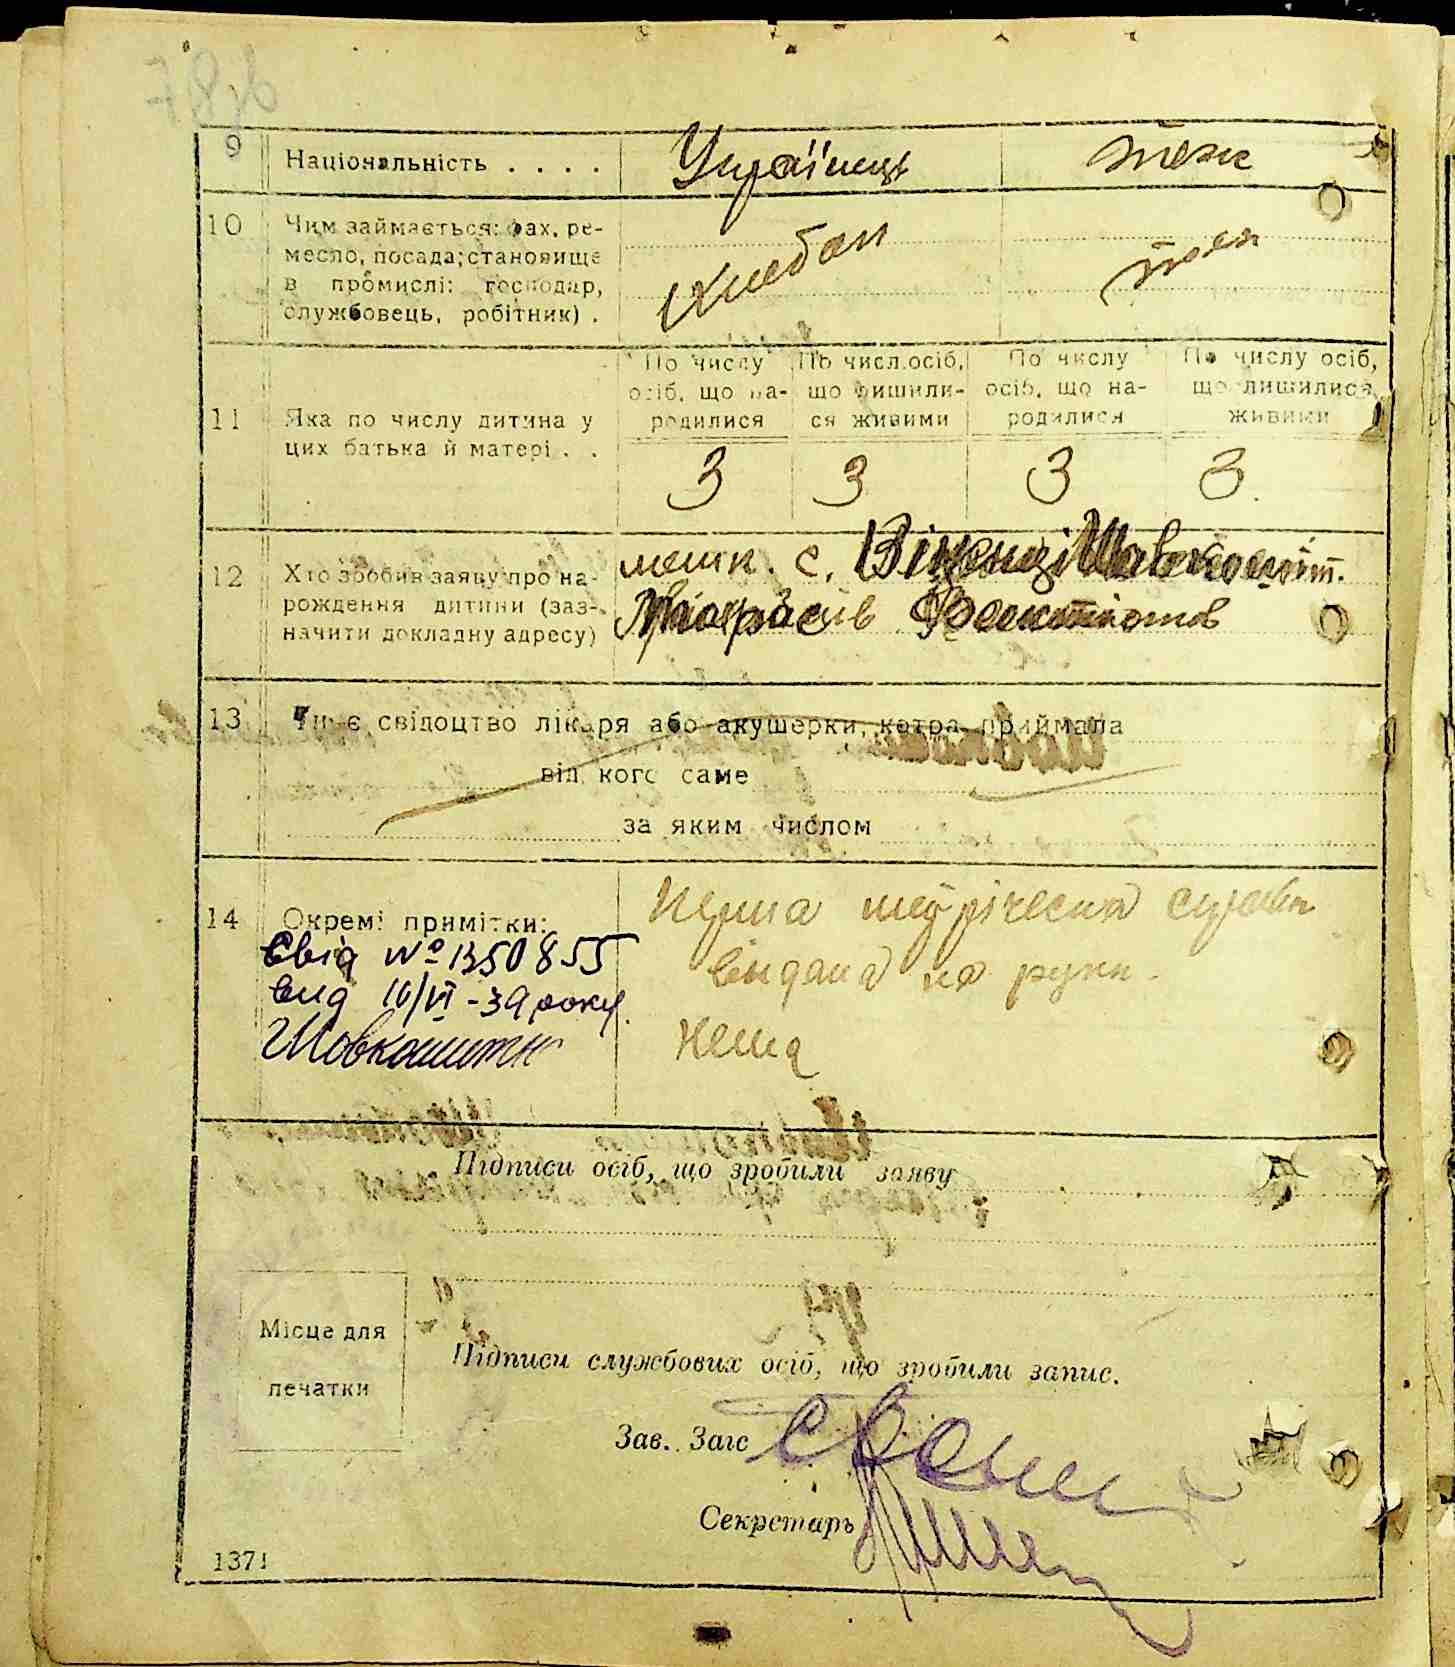 9 Національність . . . . Українець теж
10 Чим займається: фах, ре-
месло, посада; становище
в промислі: господар,
службовець, робітник) .
хлебоп теж
По числу осіб, що на-родилися По числ.осіб, що лишили-ся живими По числу осіб, що на-родилися По числу осіб, що лишилися живими
11 Яка по числу дитина у
цих батька й матері . .
3 3 3 3
12 Хто зробив заяву про на-
рождення дитини (заз-
начити докладну адресу)
мешк. с.
13 Чи є свідоцтво лікаря або акушерки, котра приймала
від кого саме
за яким числом
14 Окремі примітки:
Свід № 1350855
вид 10/VI-39 року
Шовкошитн
видана на руки.
Нема
Підписи осіб, що зробили заяву
Місце для
печатки
Підписи службових осіб, що зробили запис.
Зав. Загс
Секретарь
1371